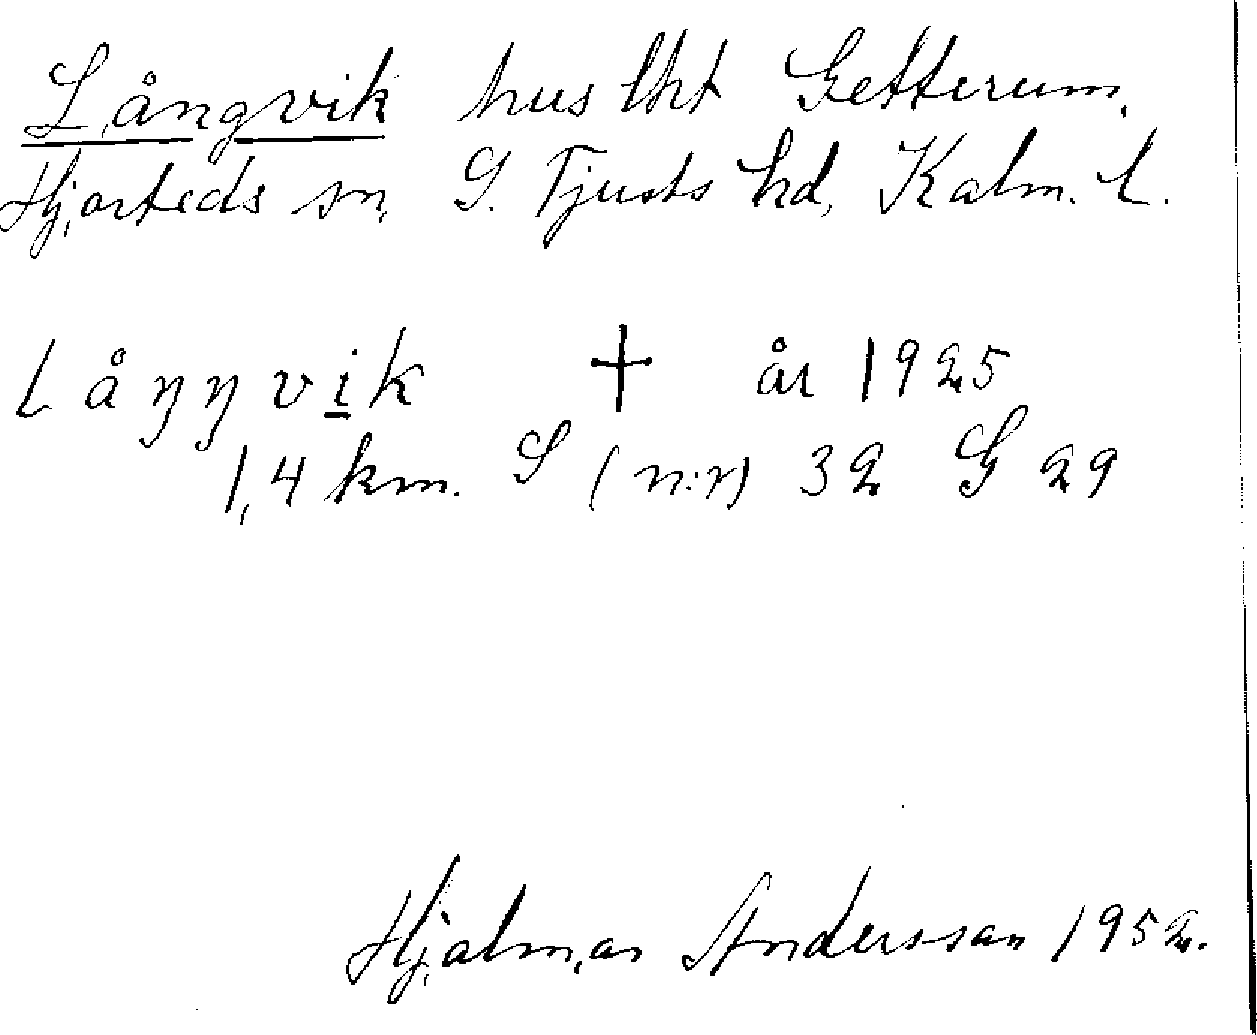 Långvik hus lht Getterum,
Hjorteds sn, S. Tjusts hd, Kalm. l.
Låŋŋvik † år 1925
1,4 km. S (n:r) 32 G 29
Hjalmar Andersson 1952.